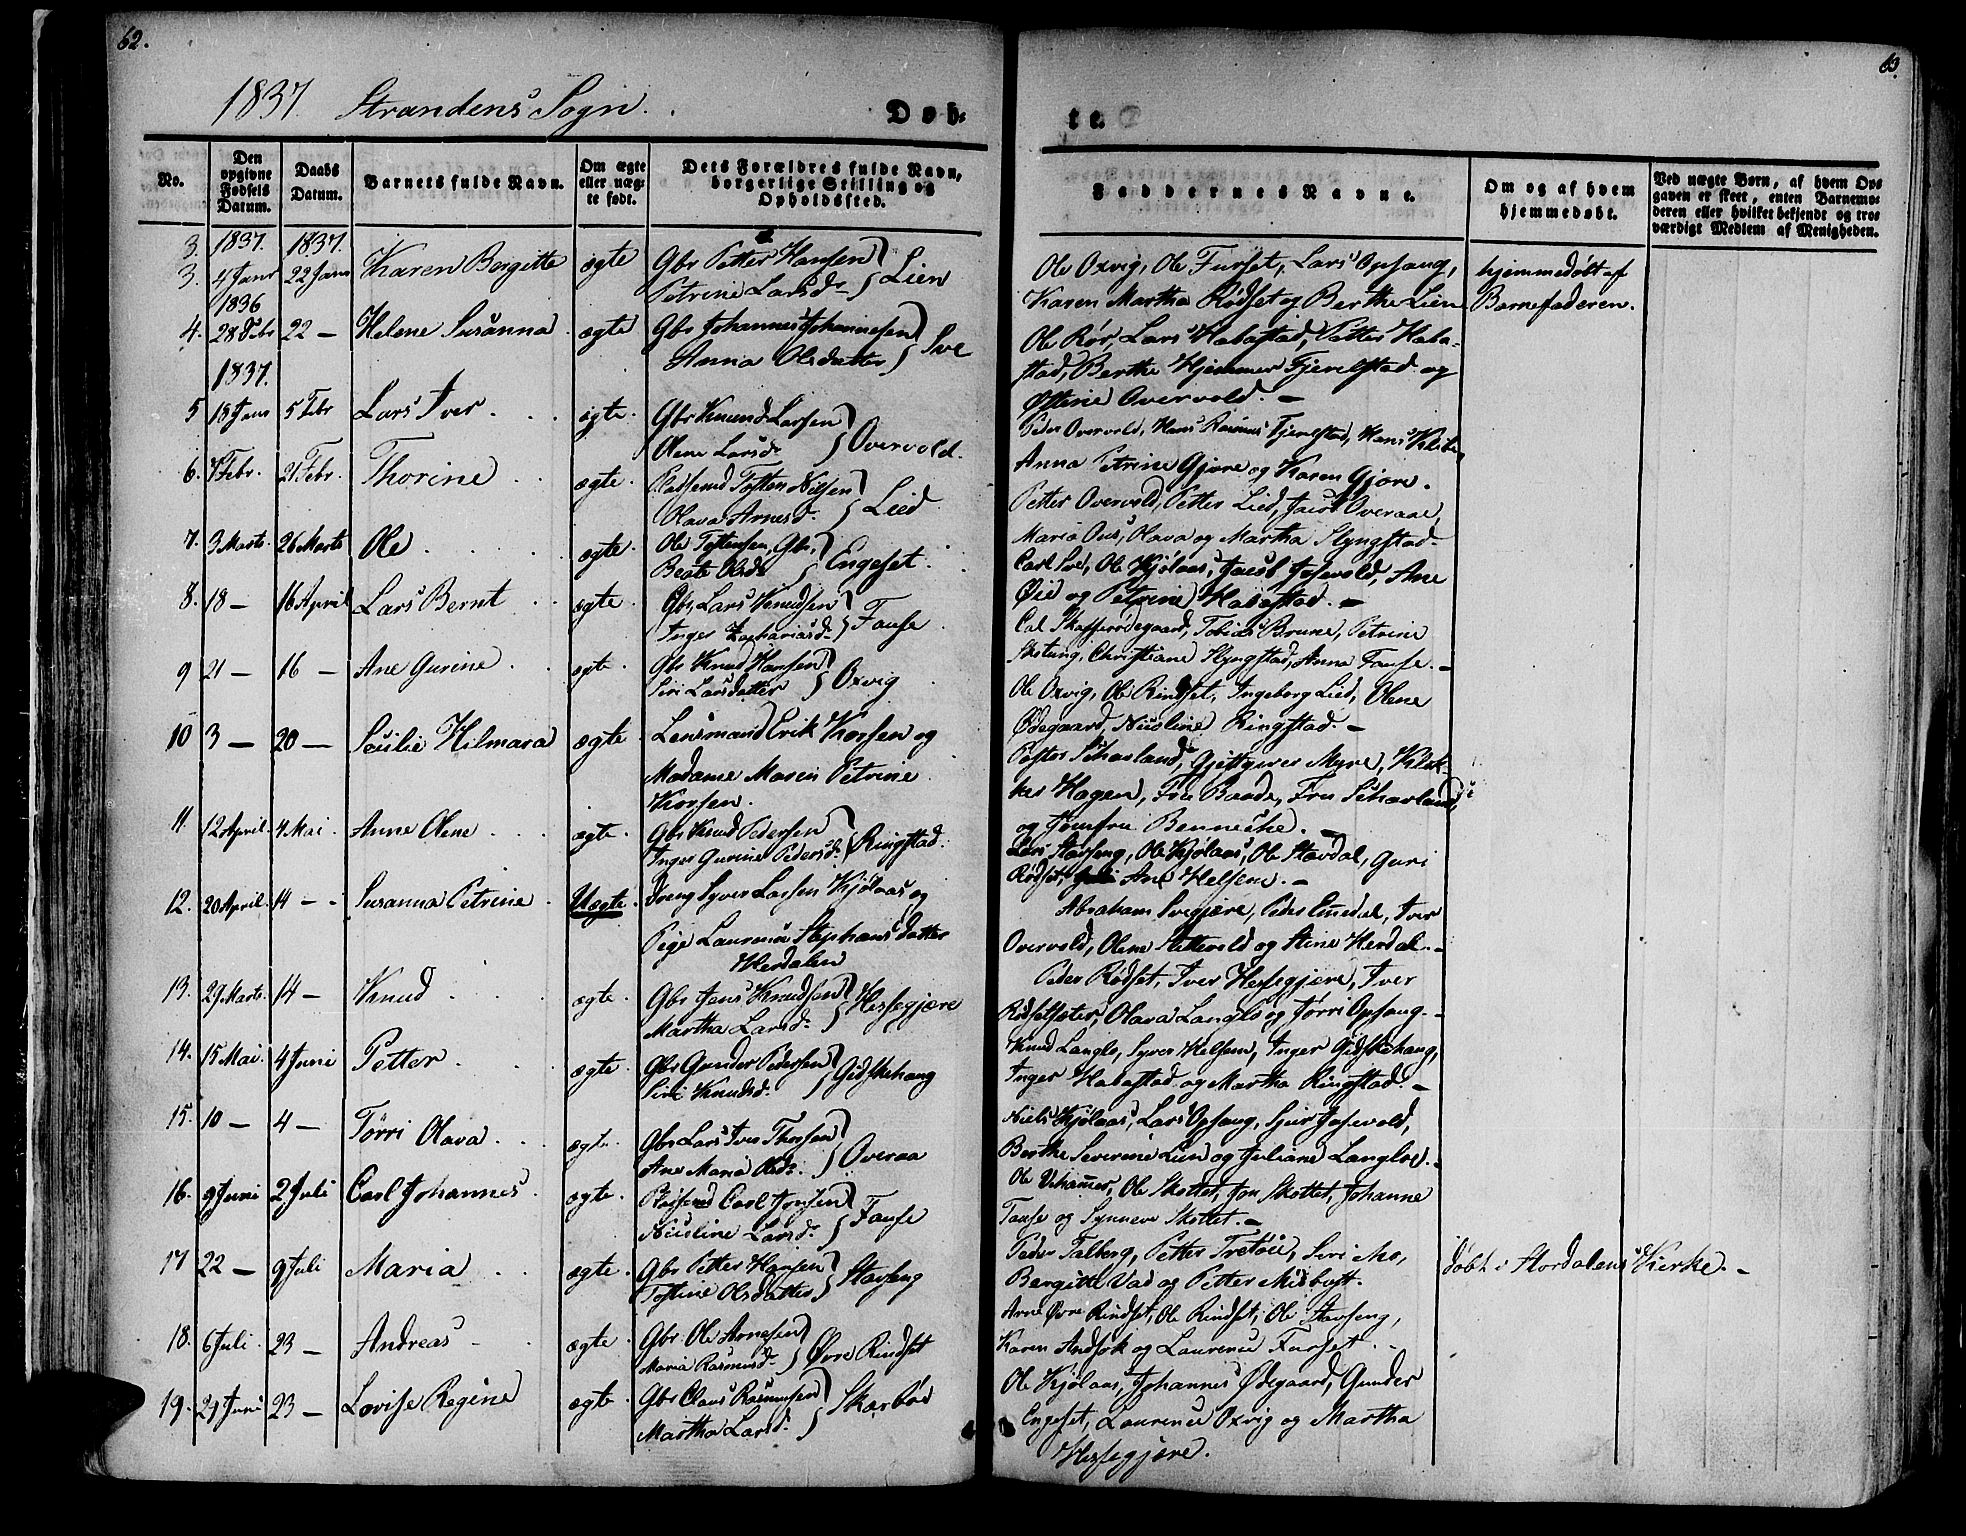 62.
1837. Strandens Sogn.
Døb-
No.
Den opgivne Fødsels Datum.
Daabs Datum.
Barnets fulde Navn.
Om ægte eller uæg- te født.
Dets Forældres fulde Navn, borgerlige Stilling og Opholdssted.
3. 1837. 1837.
3. 4 Janr 22 Janr Karen Bergitte ægte Gbr Petter Hansen
Petrine Larsd. } Lien
1836
4. 28 Febr 22 — Helene Susanna ægte Gbr Johannes Johannesen
Anna Olsdatter } Sve
1837.
5 18 Janr 5 Febr Lars Iver ægte. Gbr Knud Larsen
Olene Larsd. } Overvold.
6. Febr. 21 Febr. Thorine ægte. Tosten Nilsen
Olava Arnesd. } Lied
7. 3 Marts 26 Marts Ole ægte. Ole Tostensen, Gbr,
Beate Olsd. } Engeset.
8. 18 — 16 April Lars Bernt ægte. Gbr Lars Knudsen
Inger Zachariasd. } Fause
9 21 — 16 — Ane Gurine ægte. Gbr Knud Hansen
Siri Larsdatter } Oxvig
10 3 — 20 — Hilmara ægte. Lensmand Erik Korsen og
Madame Maren Petrine
Korsen.
11. 12 April. 4 Mai Anne Olene ægte. Gbr Knud Pedersen
Inger Gurine Pedersd. } Ringstad.
12. 20 April. 14 — Susanna Petrine. Uægte. Dreng Syver Larsen Kjølaas og
Pige Laurense Stephansdatter
Herdalen
13. Marts 14 — Knud ægte. Gbr Jens Knudsen
Martha Larsd. } Hessegjære
14. 15 Mai. 4 Juni Petter. ægte. Gbr Gunder Pedersen
Siri Knudsd. } Gidskehaug
15. 10 — 4 — Tørri Olava. ægte. Gbr Lars Iver Thorsen
Ane Maria Olsd. } Overaa
16. 9 Juni 2 Juli Carl Johannes. ægte. Carl Jonsen
Nicoline Larsd. } Fause
17 22 — 9 Juli Maria ægte. Gbr Petter Hansen
Tostine Olsdatter } Stavseng
18. 6 Juli. 23 — Andreas — ægte. Gbr Ole Arnesen
Maria Rasmusd. } Øvre Rindset
19. 29 Juni 23 — Lovise Regine ægte. Gbr Claus Rasmussen
Martha Larsd. } Skarbød
63
te.
Faddernes Navne.
Om og af hvem hjemmedøbt.
Ved uægte Børn, af hvem Op- gaven er skeet, enten Barnemo- deren eller hvilket bekjendt og tro- værdigt Medlem af Menigheden.
Ole Oxvig, Ole Furset, Lars Opsang, hjemmedøbt af
Karen Martha Rødset og Berthe Lien Barnefaderen.
Ole Rør, Lars Habostad, Petter Habo-
stad, Berthe Hjemmer Fjeelstad og
Østine Overvold. —
Peder Overvold, Hans Rasmus Fjeelstad, Hans
Anna Petrine Gjøre og Karen Gjøre.
Petter Overvold, Petter Lied, Jacob Overaae,
Maria Ous, Olava og Martha Slyngstad.
Carl Sve, Ole Kjølaas, Jacob Josevold, Ane
Øid og Petrine Habostad. —
Tobias Brune, Petrine
Christiane Slyngstad, Anna Fause. —
Ole Oxvig, Ole Rindset, Ingeborg Lied, Olene
Ødegaard, Nicoline Ringstad. —
Schasland, Myre, Klok-
ker Hagen, Fru Baade, Fru Schasland,
og Jomfru Benneche. —
Lars Stavseng, Ole Kjølaas, Ole Stavdal, Guri
Rødset, Ane Helsem. —
Abraham Svegjære, Peder Emedal, Iver
Overvold, Olene og Stine Herdal. —
Peder Rødset, Iver Hessegjære, Iver
Olava Langlo og Tørri Opsang. —
Knud Langlo, Syver Helsem, Inger Gidskehaug,
Inger Habostad og Martha Ringstad. —
Niels Kjølaas, Lars Opsang, Sjur Josevold,
Berthe Severine Lien og Juliane Langloe. —
Ole Uhammer, Ole Skottet, Jon Skottet, Johanne
Fause og Synneve Skottet. —
Peder Talberg, Petter Siri Mo, døbt i Stordalens Kirke. —
Bergitte Vad og Petter Midbust.
Arne Øvre Rindset, Ole Rindset, Ole Stavseng,
Karen Andsok og Laurense Furset.
Ole Kjølaas, Johannes Ødegaard, Gunder
Engeset, Laurense Oxvig og Martha
Hessegjære.